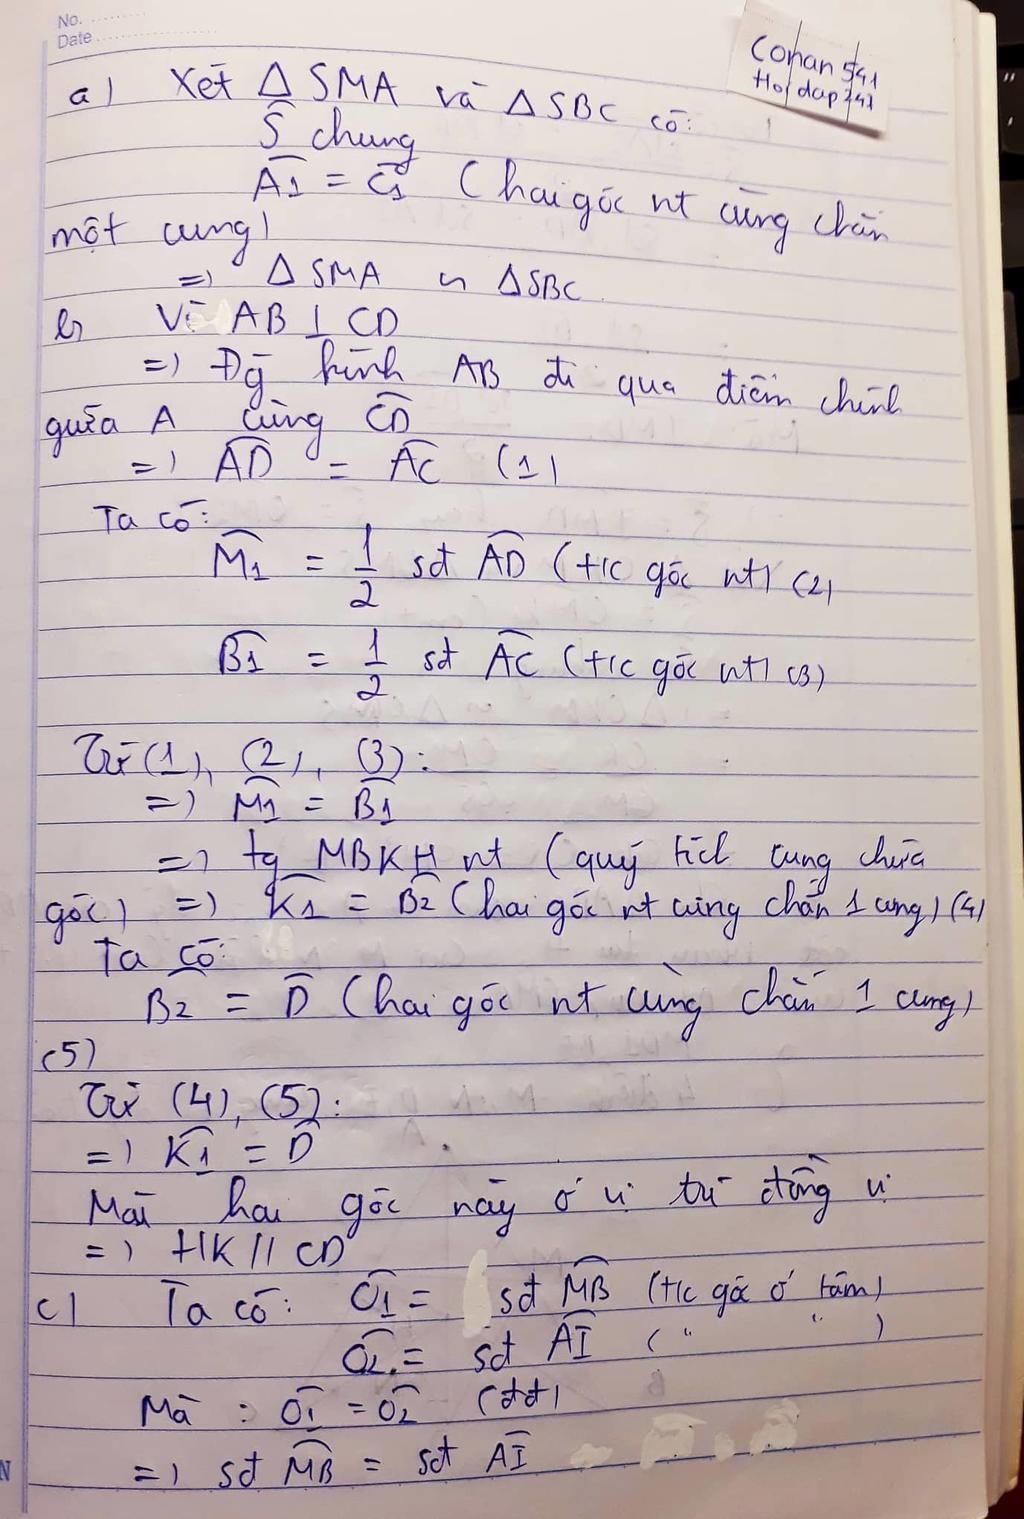 No.
Date
Conan 541
Hoidap 247
a) Xét Δ SMA và Δ SBC có:
Ŝ chung
Â1 = Ĉ1 (hai góc nt cùng chắn
một cung)
=> Δ SMA ᔕ Δ SBC
b, Vì AB ⊥ CD
=> Đg kính AB đi qua điểm chính
giữa A cung CD
=> AD = AC (1)
Ta có:
M1 = 1/2 sđ AD (t/c góc nt) (2)
B1 = 1/2 sđ AC (t/c góc nt) (3)
Từ (1), (2), (3):
=> M1 = B1
=> tg MBKH nt (quỹ tích cung chứa
góc) => K1 = B2 (hai góc nt cùng chắn 1 cung) (4)
Ta có:
B2 = D (hai góc nt cùng chắn 1 cung)
(5)
Từ (4), (5):
=> K1 = D
Mà hai góc này ở vị trí đồng vị
=> HK // CD
c) Ta có: O1 = sđ MB (t/c góc ở tâm)
O2 = sđ AI ( " " )
Mà : O1 = O2 (đđ)
=> sđ MB = sđ AI
N